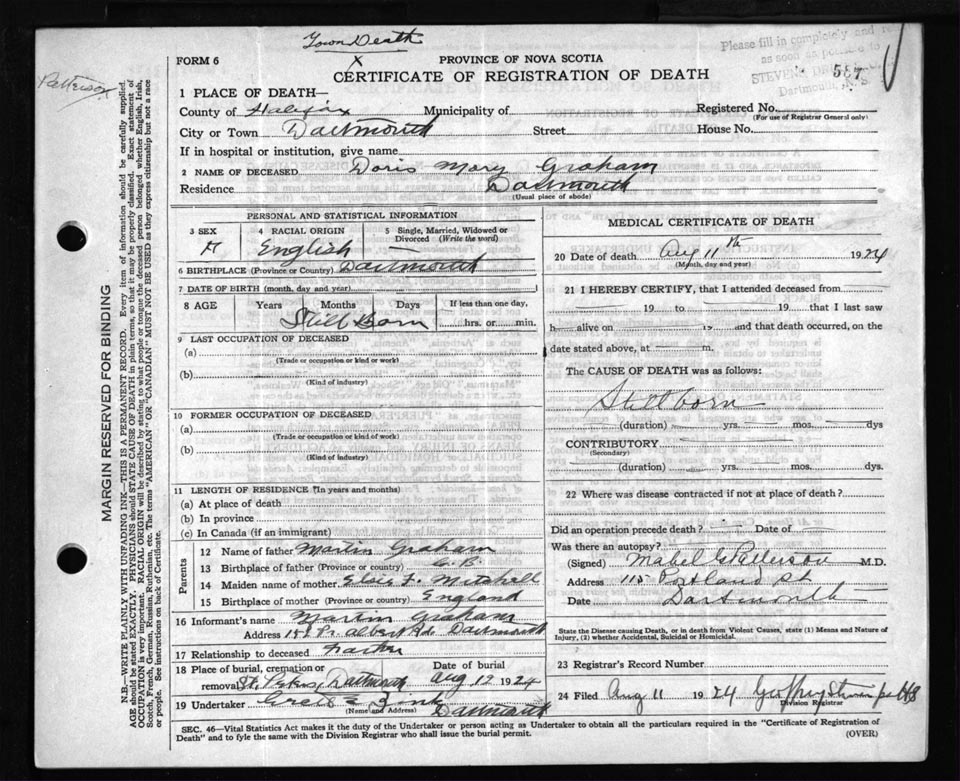 Town Death
Patterson
Please fill in completely and re
as soon as possible to
STEVENS
587
Dartmouth, N. S.
FORM 6
PROVINCE OF NOVA SCOTIA
CERTIFICATE OF REGISTRATION OF DEATH
1 PLACE OF DEATH—
County of Halifax Municipality of Registered No.
(For use of Registrar General only)
City or Town Dartmouth Street House No.
If in hospital or institution, give name
2 NAME OF DECEASED Doris Mary Graham
Residence Dartmouth
(Usual place of abode)
MARGIN RESERVED FOR BINDING
N.B.—WRITE PLAINLY WITH UNFADING INK—THIS IS A PERMANENT RECORD. Every item of information should be carefully supplied.
AGE should be stated EXACTLY. PHYSICIANS should STATE CAUSE OF DEATH in plain terms, so that it may be properly classified. Exact statement of
OCCUPATION is very important. RACIAL ORIGIN will be described by stating to what people or tongue the deceased person belonged whether English, Irish,
Scotch, French, German, Russian, Ruthenian, etc. The terms "AMERICAN" OR "CANADIAN" MUST NOT BE USED as they express citizenship but not a race
or people. See instructions on back of Certificate.
PERSONAL AND STATISTICAL INFORMATION
3 SEX 4 RACIAL ORIGIN 5 Single, Married, Widowed or
Divorced (Write the word)
English
6 BIRTHPLACE (Province or Country) Dartmouth
7 DATE OF BIRTH (month, day and year)
8 AGE Years Months Days If less than one day,
Still Born hrs. or min.
9 LAST OCCUPATION OF DECEASED
(a)
(Trade or occupation or kind or work)
(b)
(Kind of industry)
10 FORMER OCCUPATION OF DECEASED
(a)
(Trade or occupation or kind of work)
(b)
(Kind of industry)
11 LENGTH OF RESIDENCE (In years and months)
(a) At place of death
(b) In province
(c) In Canada (if an immigrant)
Parents
12 Name of father Martin Graham
13 Birthplace of father (Province or country)
14 Maiden name of mother Elsie F. Mitchell
15 Birthplace of mother (Province or country) England
16 Informant's name Martin Graham
Address Pr. Albert Rd. Dartmouth
17 Relationship to deceased Father
18 Place of burial, cremation or Date of burial
removal St. Peters, Dartmouth Aug 12 1924
19 Undertaker Zink
(Name and Address) Dartmouth
MEDICAL CERTIFICATE OF DEATH
20 Date of death Aug 11th 1924
(Month, day and year)
21 I HEREBY CERTIFY, that I attended deceased from
19 to 19 that I last saw
h alive on 19 and that death occurred, on the
date stated above, at m.
The CAUSE OF DEATH was as follows:
Stillborn
(duration) yrs. mos. dys
CONTRIBUTORY
(Secondary)
(duration) yrs. mos. dys.
22 Where was disease contracted if not at place of death?
Did an operation precede death? Date of
Was there an autopsy?
(Signed) Mabel G Patterson M.D.
Address 115 Portland St
Date Dartmouth
State the Disease causing Death, or in death from Violent Causes, state (1) Means and Nature of
Injury, (2) whether Accidental, Suicidal or Homicidal.
23 Registrar's Record Number
24 Filed Aug 11 1924
Division Registrar
SEC. 46—Vital Statistics Act makes it the duty of the Undertaker or person acting as Undertaker to obtain all the particulars required in the "Certificate of Registration of
Death" and to fyle the same with the Division Registrar who shall issue the burial permit. (OVER)